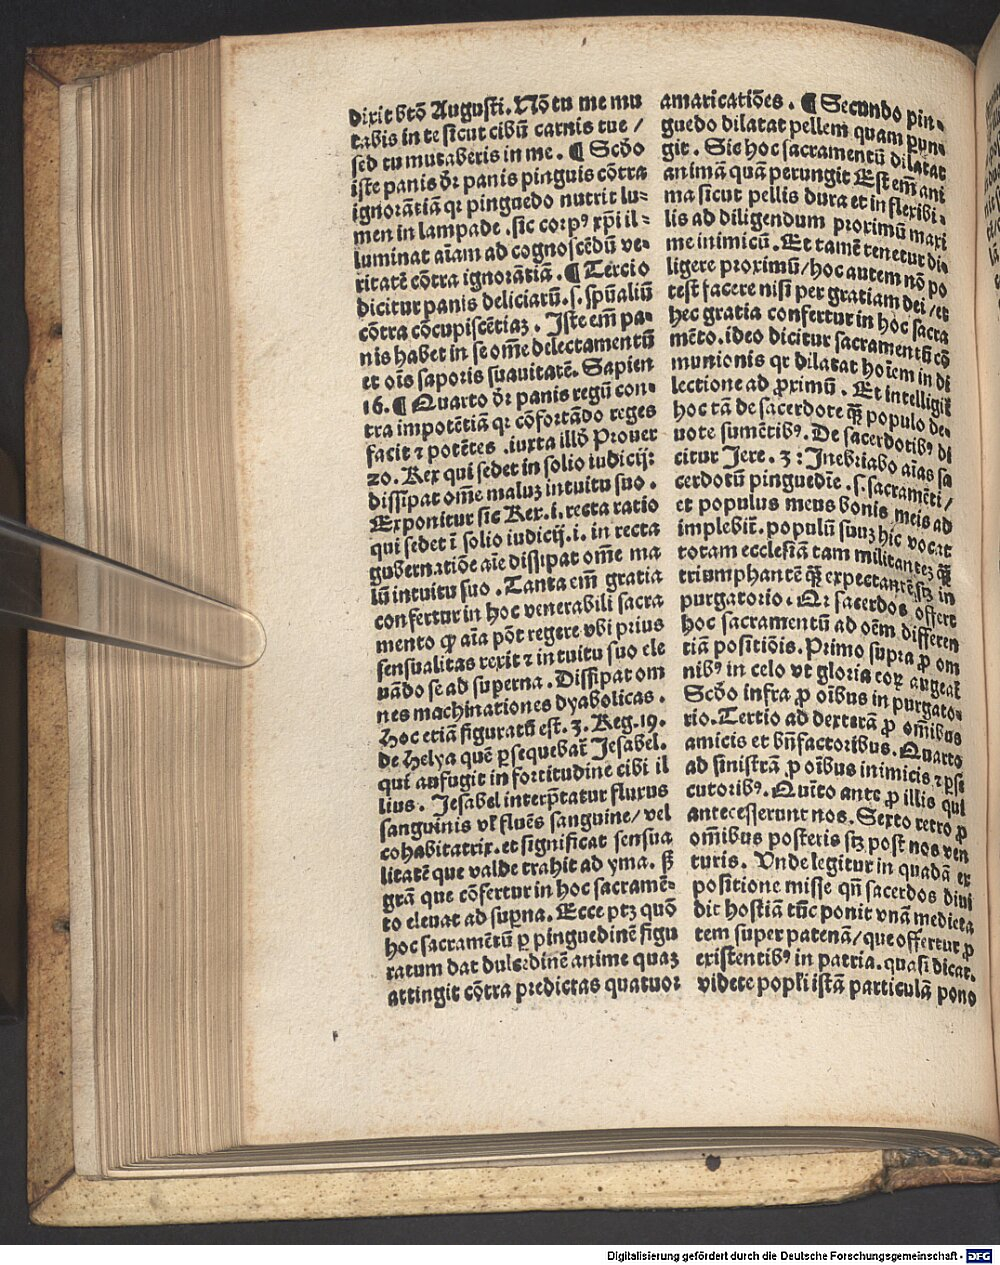 dixit btō Augusti. Nō tu me mu
tabis in te sicut cibū carnis tue /
sed tu mutaberis in me. ¶ Scđo
iste panis dr̄ panis pinguis cōtra
ignorātiā qꝛ pinguedo nutrit lu⸗
men in lampade .sic corpꝰ xp̄i il⸗
luminat aīam ad cognoscēdū ve⸗
ritatē cōtra ignorātiā. ¶ Tercio
dicitur panis deliciarū .s. sp̄ualiū
cōtra cōcupiscētiaꝫ. Iste em̄ pa⸗
nis habet in se om̄e delectamentū
et oīs saporis suauitatē. Sapien
16. ¶ Quarto dr̄ panis regū con⸗
tra impotētiā qꝛ cōfortādo reges
facit ⁊ potētes .iuxta illđ Prouer
20. Rex qui sedet in solio iudicij:
dissipat om̄e maluꝫ intuitu suo.
Exponitur sic Rex .i. recta ratio
qui sedet ī solio iudicij .i. in recta
gubernatiōe aīe dissipat om̄e ma
lū intuitu suo. Tanta em̄ gratia
confertur in hoc venerabili sacra
mento ꝙ aīa pōt regere vbi prius
sensualitas rexit ⁊ in tuitu suo ele
uādo se ad superna. Dissipat om
nes machinationes dyabolicas.
Hoc etiā figuratū est. 3. Reg. 19.
de Helya quē ꝑsequebat̄ Jesabel.
qui aufugit in fortitudine cibi il
lius. Jesabel interp̄tatur fluxus
sanguinis vl̓ fluēs sanguine/ vel
cohabitatrix. et significat sensua
litatē que valde trahit ad yma. sꝫ
grā que cōfertur in hoc sacramē⸗
to eleuat ad suꝑna. Ecce ptꝫ quō
hoc sacramētū ꝑ pinguedinē figu
ratum dat dulcedinē anime quaꝫ
attingit cōtra predictas quatuor
amaricatiōes. ¶ Secundo pin⸗
guedo dilatat pellem quam ꝑun⸗
git. Sic hoc sacramentū dilatat
animā quā perungit Est em̄ ani
ma sicut pellis dura et in flexibi⸗
lis ad diligendum proximū maxi
me inimicū. Et tamē tenetur di⸗
ligere proximū/ hoc autem nō po
test facere nisi per gratiam dei /et
hec gratia confertur in hoc sacra
mēto. ideo dicitur sacramentū cō
munionis qꝛ dilatat hoīem in di
lectione ad ꝓximū. Et intelligit̄
hoc tā de sacerdote q̄ꝫ populo de⸗
uote sumētibꝰ. De sacerdotibꝰ di
citur Jere. 3: Inebriabo aīas sa
cerdotū pinguedīe .s. sacramēti/
et populus meus bonis meis ad
implebit̄. populū suuꝫ hic vocat
totam ecclesiā tam militanteꝫ q̄ꝫ
triumphantē q̄ꝫ expectantē sꝫ in
purgatorio. Qꝛ sacerdos offert
hoc sacramentū ad oēm differen
tiā positiōis. Primo supra ꝓ om
nibꝰ in celo vt gloria eoꝝ augeat̄
Scđo infra ꝓ oībus in purgato⸗
rio. Tertio ad dexterā ꝓ om̄ibus
amicis et bn̄factoribus. Quarto
ad sinistrā ꝓ oībus inimicis ⁊ ꝑse
cutoribꝰ. Quīto ante ꝓ illis qui
antecesserunt nos. Sexto retro ꝓ
om̄ibus posteris sꝫ post nos ven
turis. Vnde legitur in quadā ex
positione misse qn̄ sacerdos diui
dit hostiā tūc ponit vnā medieta
tem super patenā/ que offertur ꝓ
existentibꝰ in patria. quasi dicat.
videte popl̓i istā particulā pono
Digitalisierung gefördert durch die Deutsche Forschungsgemeinschaft - DFG